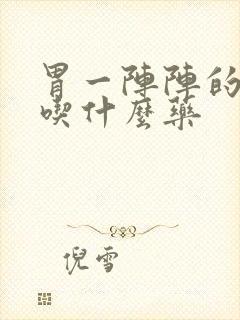 胃一陣陣的
喫什麼藥
倪雪